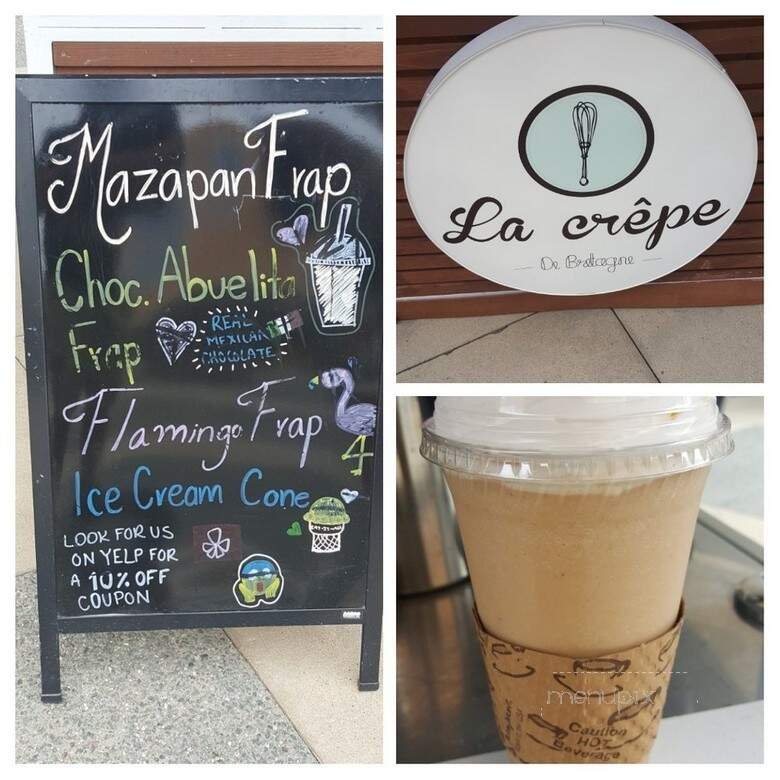 Mazapan Frap
Choc. Abuelita
Frap
REAL
MEXICAN
CHOCOLATE
Flamingo Frap
Ice Cream Cone
LOOK FOR US
ON YELP FOR
A 10% OFF
COUPON
La crêpe
De Bretagne
menupix
Caution
HOT
Beverage